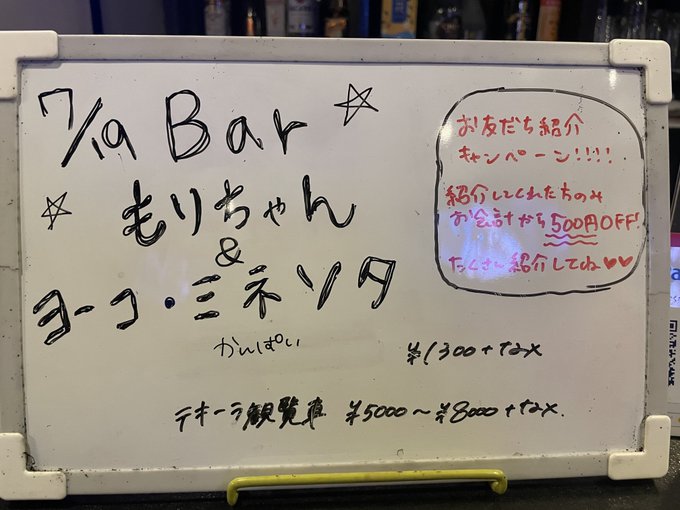 7/19 Bar
もりちゃん
&
ヨーコ・ミネソタ
かんぱい
¥1300+tax
テキーラ観覧車 ¥5000~¥8000+tax.
お友だち紹介
キャンペーン!!!!
紹介してくれた方のみ
お会計から500円OFF!
たくさん紹介してね♥♥